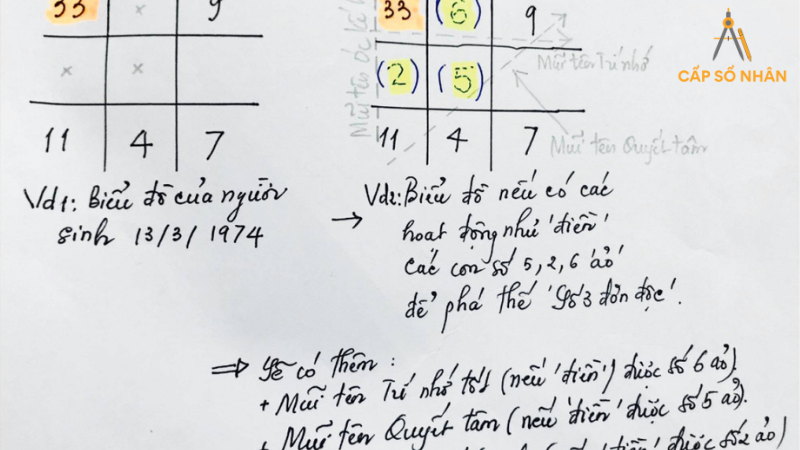 33 x 9
x x
11 4 7
Vd1: Biểu đồ của người
sinh 13/3/1974
33 (6) 9
(2) (5)
11 4 7
Mũi tên Trí nhớ
Mũi tên Quyết tâm
Mũi tên Óc kế
CẤP SỐ NHÂN
→ Vd2: Biểu đồ nếu có các
hoạt động như 'điền'
các con số 5, 2, 6 'ảo'
để phá thế 'số 3 đơn độc'.
⇒ Sẽ có thêm:
+ Mũi tên Trí nhớ tốt (nếu 'điền') được số 6 ảo).
+ Mũi tên Quyết tâm (nếu 'điền' được số 5 ảo).
'điền' được số 2 ảo)